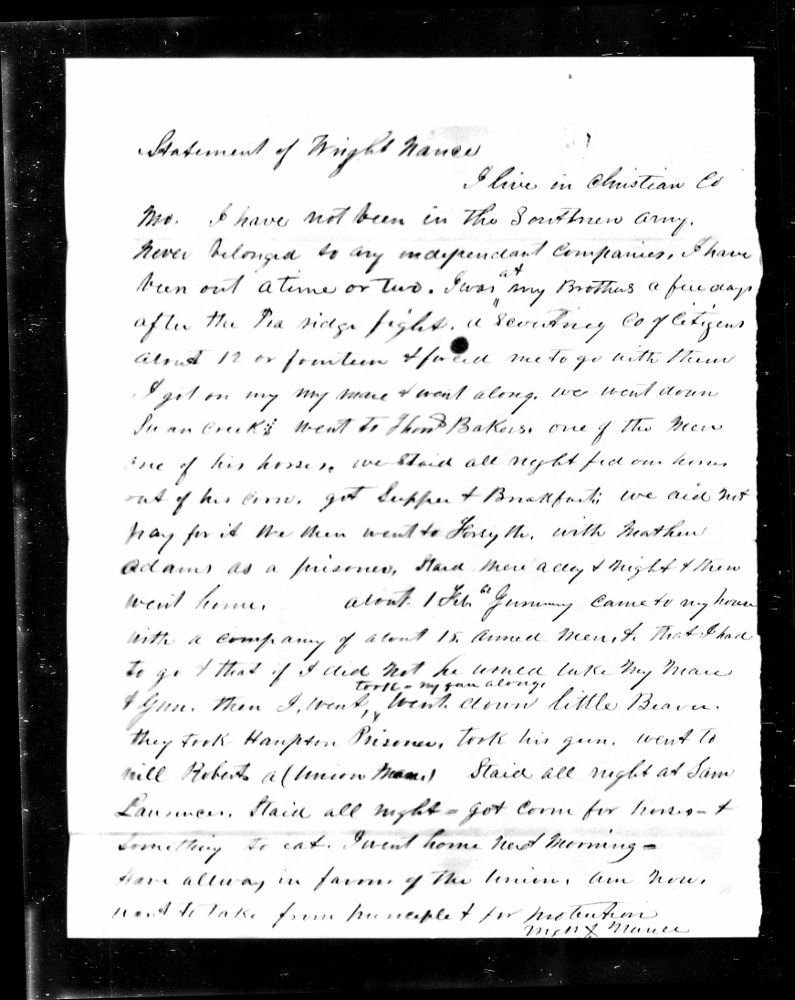 Statement of Wright Nance
I live in Christian Co
Mo. I have not been in the Southren army.
Never belonged to any independant companies, I have
been out a time or two. I was at my Brothers a few days
after the Pea ridge fight. a Co of Citizens
about 12 or fourteen & forced me to go with them
I got on my my mare & went along. we went down
Swan Creek went to Thos Bakers. one of the men
one of his horses. we Staid all night fed our horses
out of his corn. got Supper & Breakfast; we did not
pay for it We then went to Forsyth. with Mathew
Adams as a prisoner. Staid there a day & night & then
went home. about 1 Feb. came to my house
with a company of about 15 armed men, & that I had
to go & that if I did not he would take my mare
& Gun. then I, went, took my gun along. went down little Beaver.
they took Hampton Prisoner, took his gun. went to
Roberts a (Union Man) Staid all night at Sam
Staid all night - got corn for horses - &
Something to eat. I went home next morning -
Have allway in favor of the Union. am now.
want to take from principle & for protection
Nance